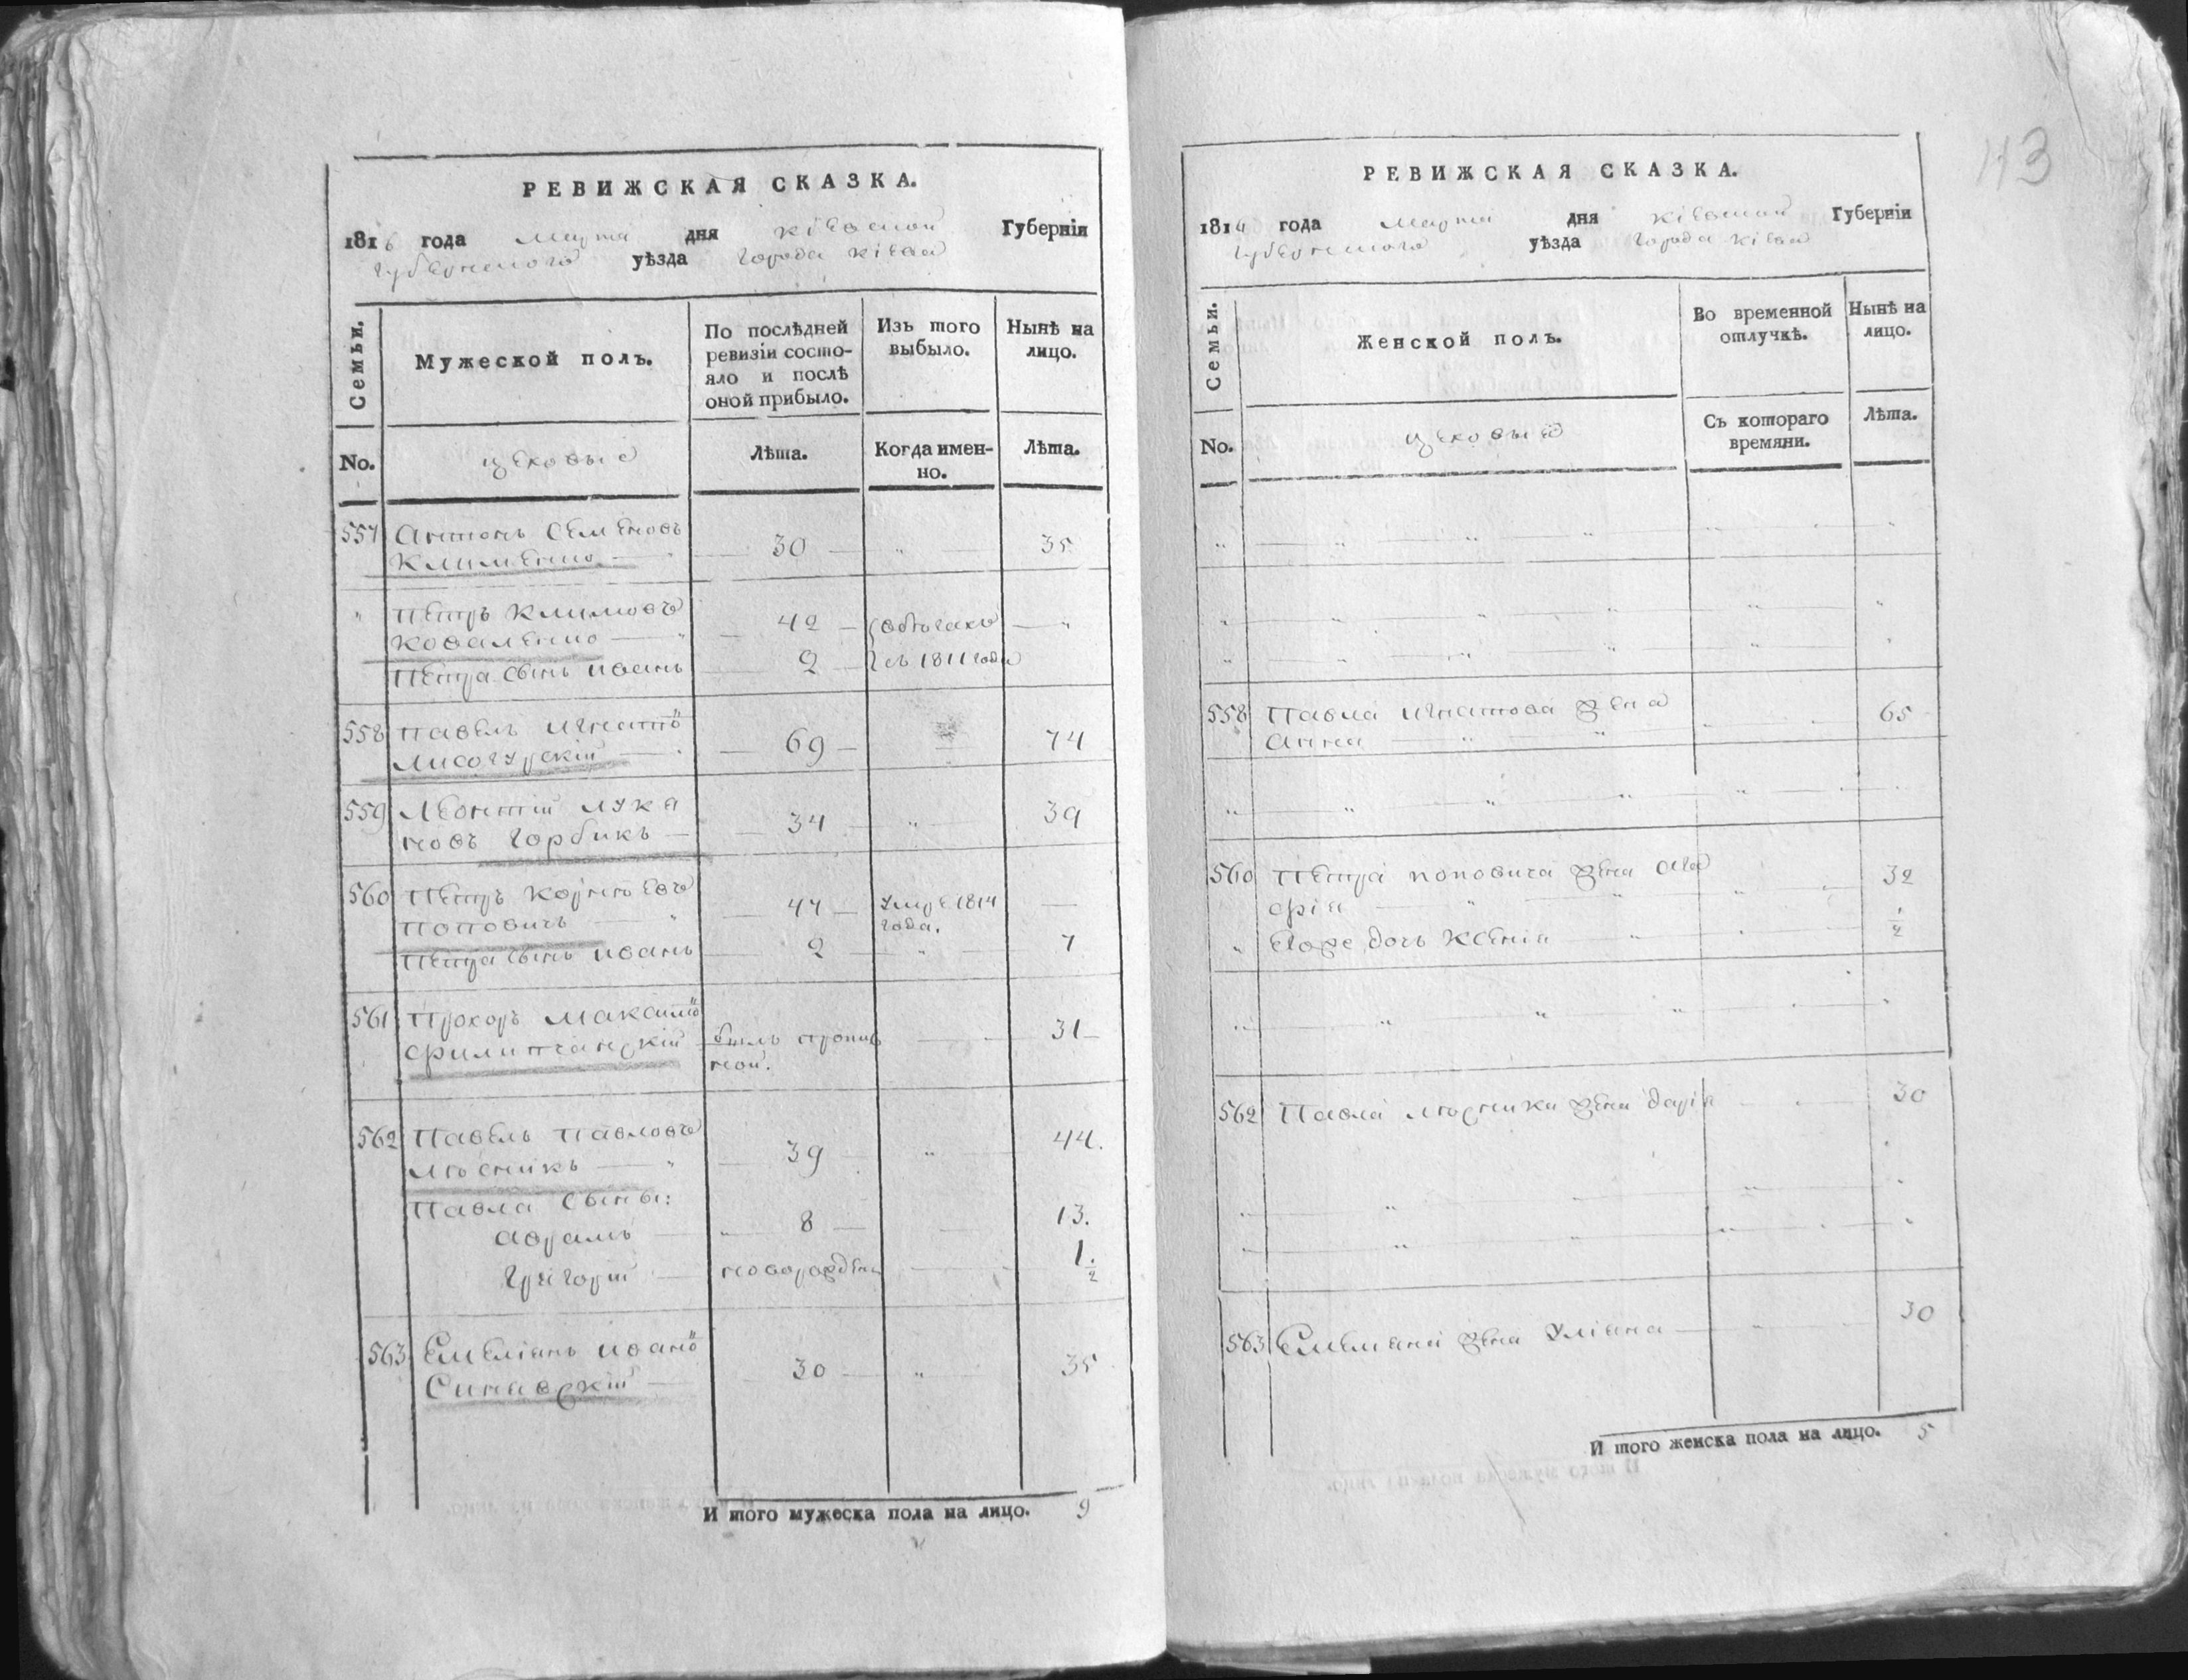 РЕВИЖСКАЯ СКАЗКА.
1816 года Марта дня Кіевской Губерніи
Губернского уѣзда Города Кіева
Семьи.
Мужеской полъ.
По послѣдней ревизіи состо-
яло и послѣ
оной прибыло.
Изъ того
выбыло.
Нынѣ на
лицо.
No.
цеховые
Лѣта.
Когда имен-
но.
Лѣта.
557 Антонъ Семеновъ
Клименко 30 35
Петръ Климовъ
Коваленко 42
Петра сынъ Иванъ 2 съ 1811 года
558 Павелъ Игнатовъ
Лисогурскій 69 74
559 Леонтій Лука
новъ Горбикъ 34 39
560 Петръ Корнѣевъ
Поповичъ 44 умре 1814
года.
Петра сынъ Иванъ 2 7
561 Прохоръ Максимовъ
Филипчанскій былъ пропис
ной. 31
562 Павелъ Павловъ
Мосникъ 39 44.
Павла сыны:
Аврамъ 8 13.
Григорій новорожден 1 1/2
563 Емеліянъ Иванов
Синявскій 30 35
И того мужеска пола на лицо. 9
113
РЕВИЖСКАЯ СКАЗКА.
1816 года Марта дня Кіевской Губерніи
Губернского уѣзда Города Кіева
Семьи.
Женской полъ.
Во временной
отлучкѣ.
Нынѣ на
лицо.
No.
цеховые
Съ котораго
времяни.
Лѣта.
558 Павла Игнатова жена
Анна 65
560 Петра Поповича жена Ма
фія 32
Егоже дочь Ксенія 1/2
562 Павла Мосника жена Дарія 30
563 Емеляна жена Уліяна 30
И того женска пола на лицо. 5